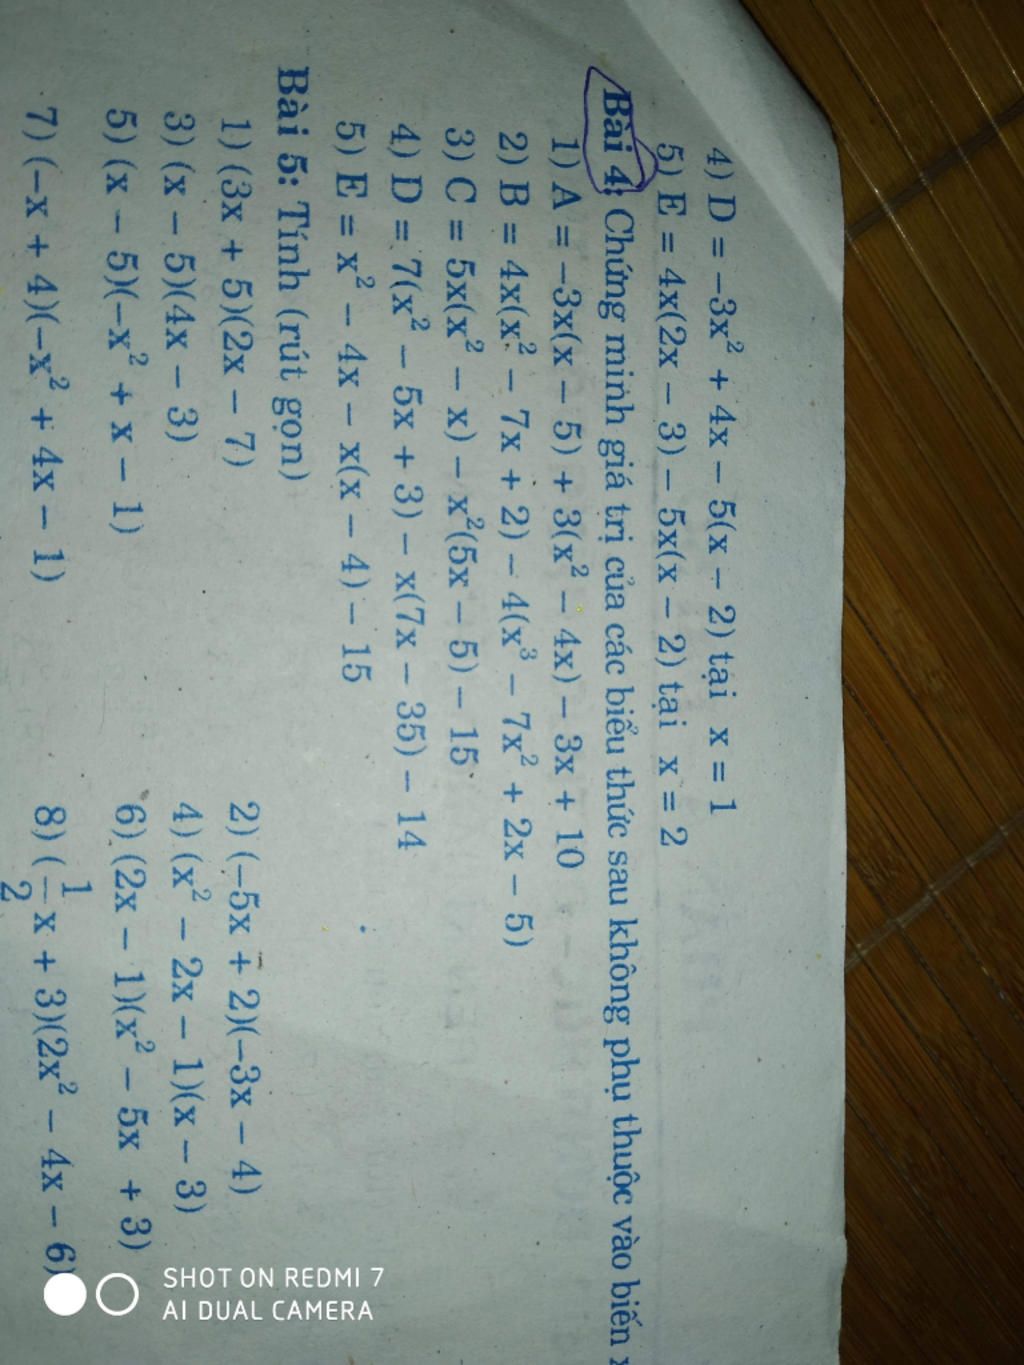 4) D = –3x² + 4x – 5(x – 2) tại x = 1
5) E = 4x(2x – 3) – 5x(x – 2) tại x = 2
Bài 4: Chứng minh giá trị của các biểu thức sau không phụ thuộc vào biến
1) A = –3x(x – 5) + 3(x² – 4x) – 3x + 10
2) B = 4x(x² – 7x + 2) – 4(x³ – 7x² + 2x – 5)
3) C = 5x(x² – x) – x²(5x – 5) – 15
4) D = 7(x² – 5x + 3) – x(7x – 35) – 14
5) E = x² – 4x – x(x – 4) – 15
Bài 5: Tính (rút gọn)
1) (3x + 5)(2x – 7) 2) (–5x + 2)(–3x – 4)
3) (x – 5)(4x – 3) 4) (x² – 2x – 1)(x – 3)
5) (x – 5)(–x² + x – 1) 6) (2x – 1)(x² – 5x + 3)
7) (–x + 4)(–x² + 4x – 1) 8) (1/2x + 3)(2x² – 4x – 6)
SHOT ON REDMI 7
AI DUAL CAMERA